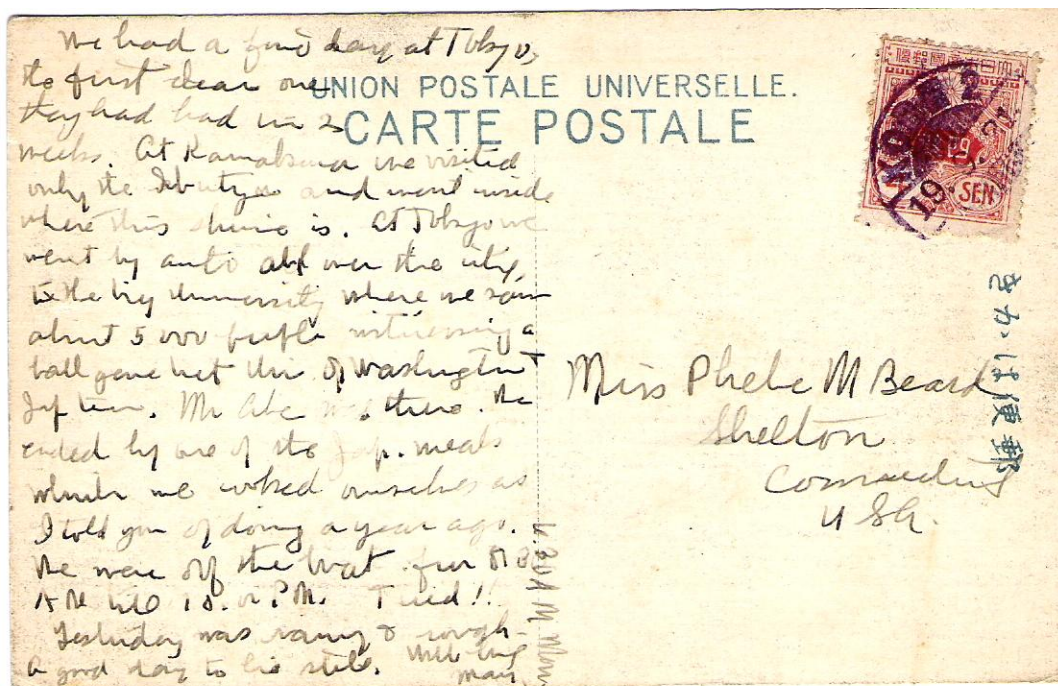 We had a fine day at Tokyo,
the first clear one
they had had in 2
weeks. At Kamakura we visited
only the and went inside
where this shrine is. At Tokyo we
went by auto all over the city,
to the big University where we saw
about 5000 people witnessing a
ball game bet Univ of Washington &
Jap team. Mr Abe was there. We
ended by one of the Jap. meals
which we cooked ourselves as
I told you of doing a year ago.
We were off the boat from 8
AM till 10. P.M. Tired!!
Yesterday was rainy & rough-
A good day to lie still.
May
UNION POSTALE UNIVERSELLE.
CARTE POSTALE
KOBE
19
SEN
きかは便郵
Miss Phebe M Beard
Shelton
Connecticut
USA.